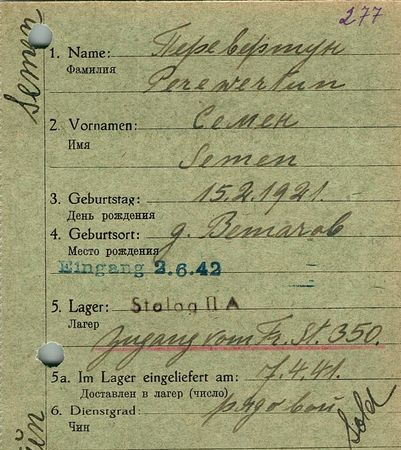 277
Semen
1. Name: Перевертун
Фамилия
Perewertun
2. Vornamen: Семен
Имя
Semen
3. Geburtstag: 15.2.1921.
День рождения
4. Geburtsort: д. Ветачов
Место рождения
Eingang 2.6.42
5. Lager: Stalag II A
Лагер
Zugang vom Fr. St. 350.
5a. Im Lager eingeliefert am: 7.4.41.
Доставлен в лагер (число)
6. Dienstgrad: рядовой
Чин
Sold